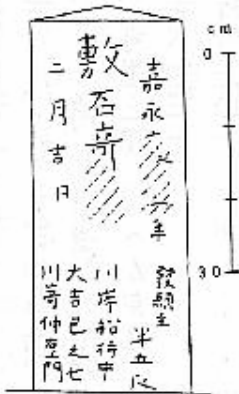 嘉永 年
敷石
二月吉日
發願主
半五良
川岸船待中
大吉邑之七
川寄仲左エ門
cm
0
30